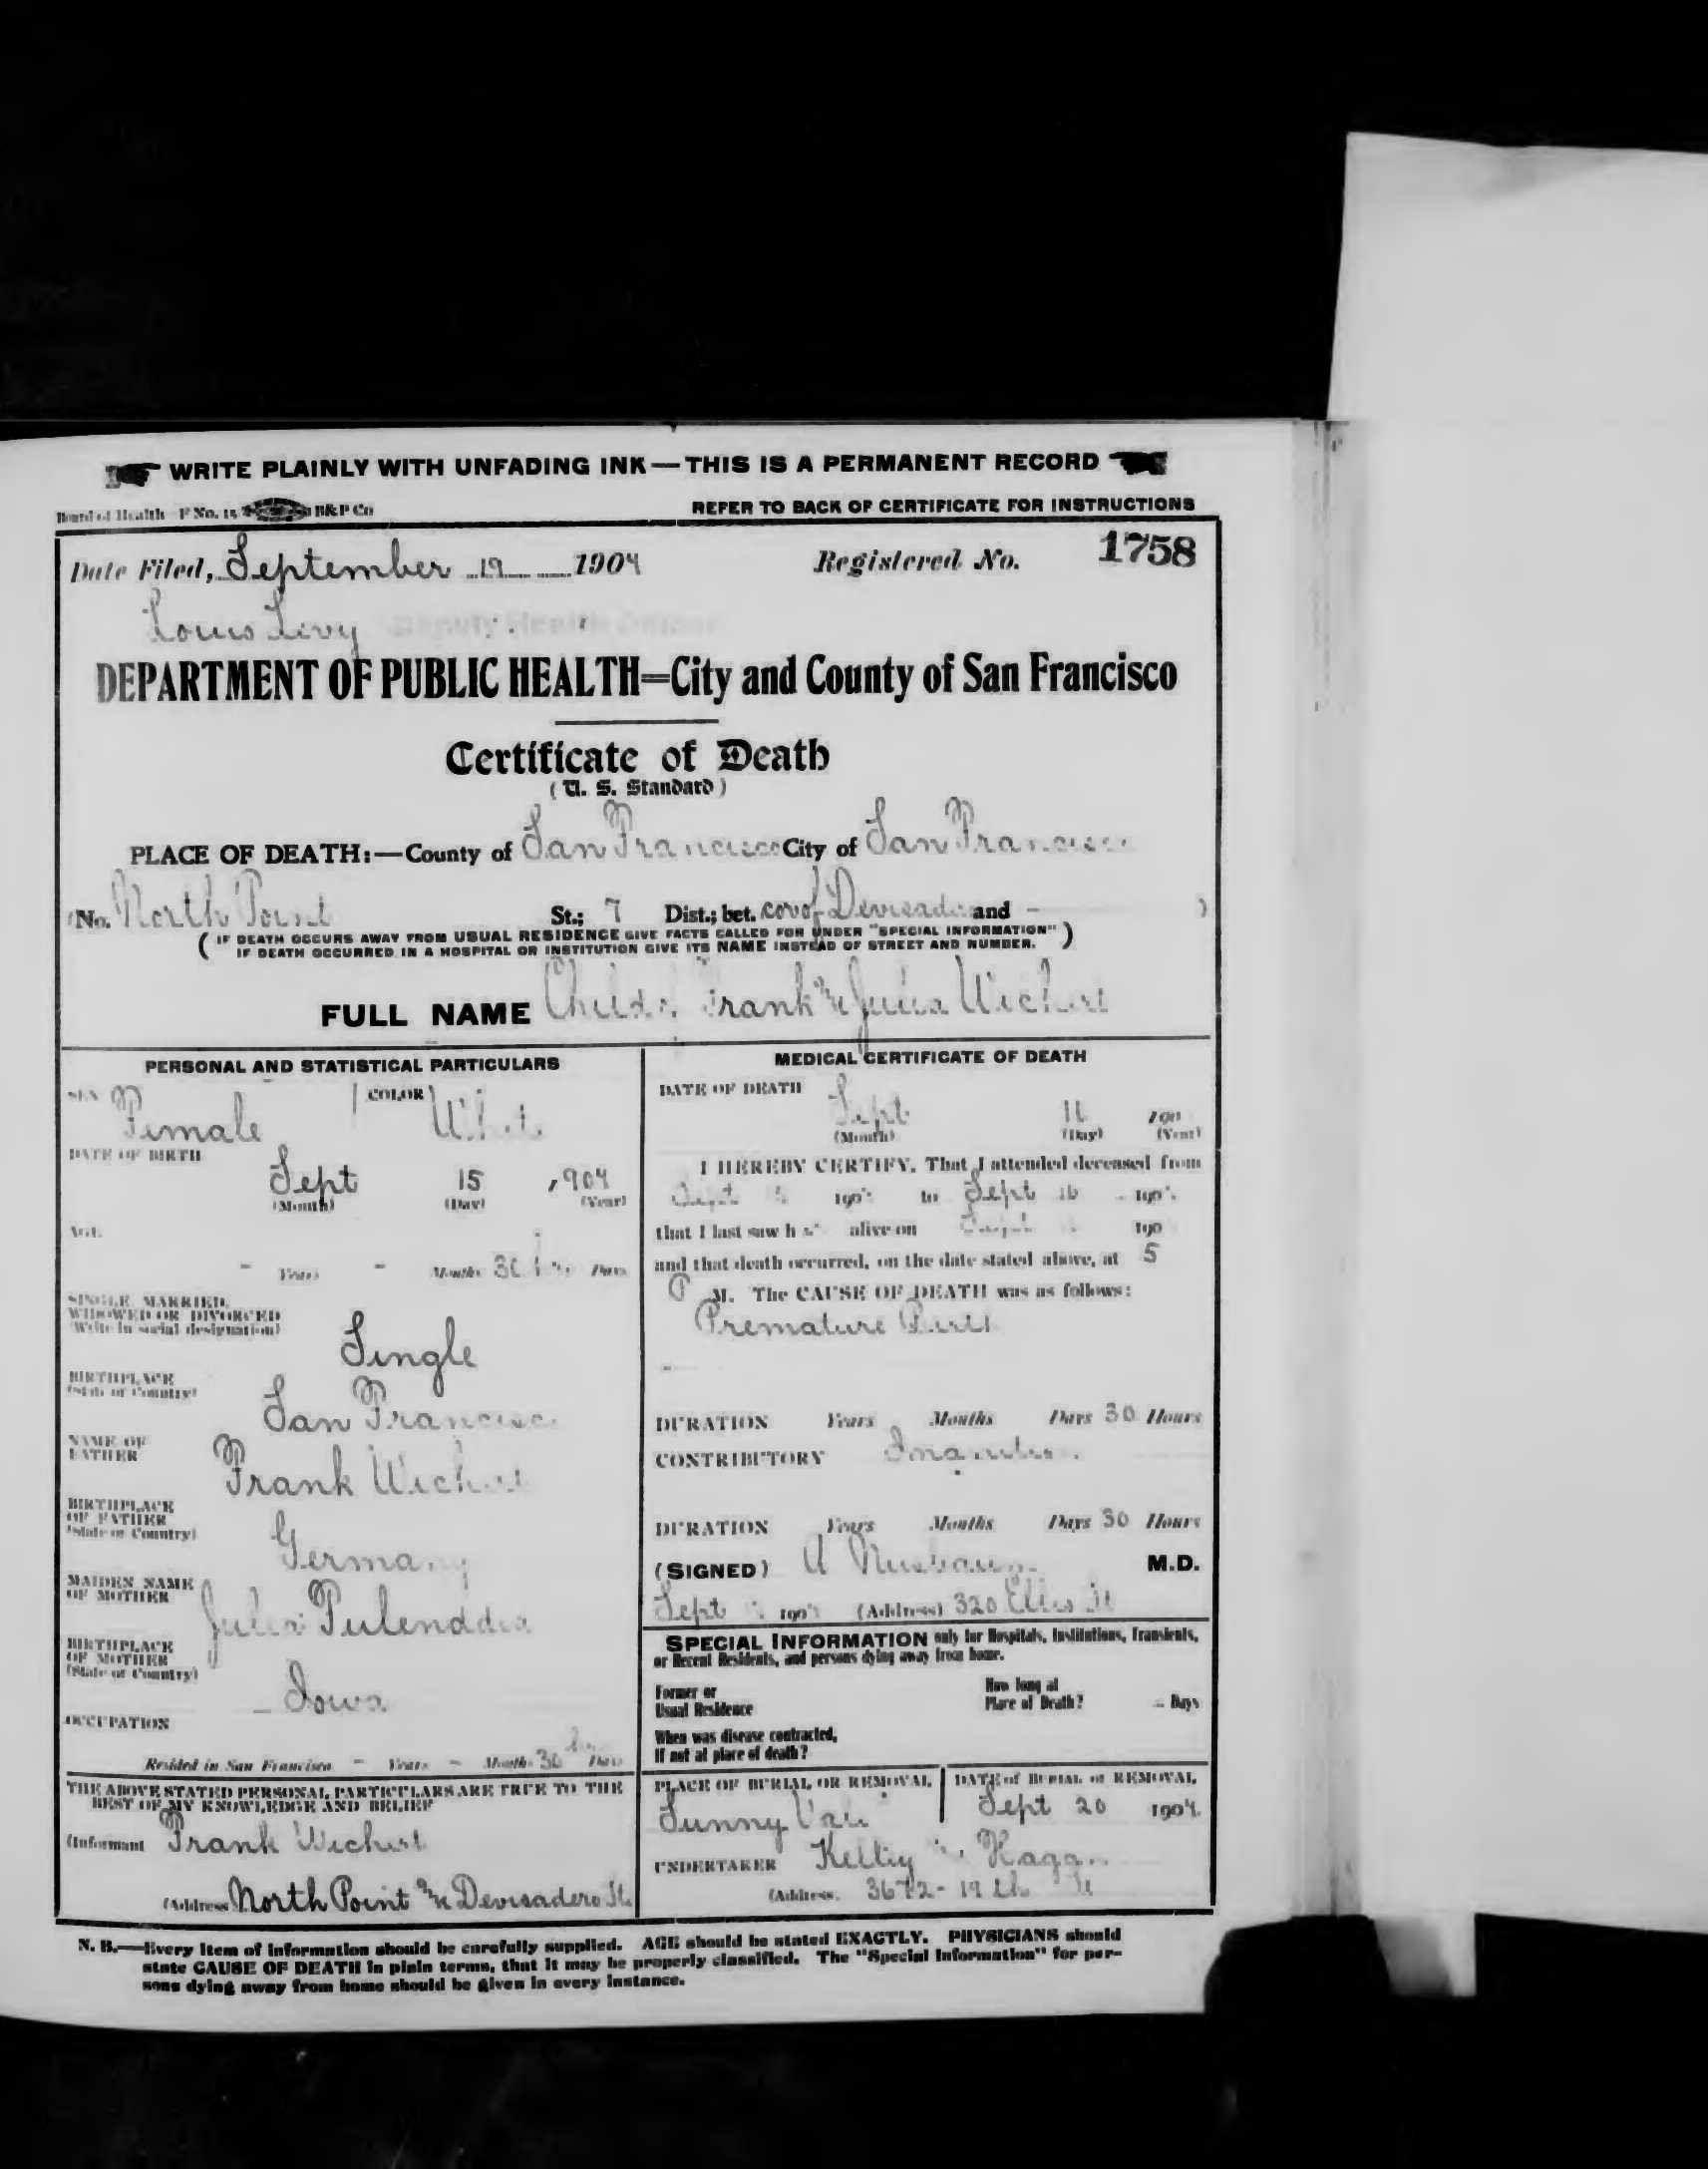 WRITE PLAINLY WITH UNFADING INK—THIS IS A PERMANENT RECORD
Board of Health F No. 15 B&P Co
REFER TO BACK OF CERTIFICATE FOR INSTRUCTIONS
Date Filed, September 19 1904 Registered No. 1758
Louis Levy
DEPARTMENT OF PUBLIC HEALTH=City and County of San Francisco
Certificate of Death
(U. S. Standard)
PLACE OF DEATH:—County of San Francisco City of San Francisco
(No. North Point St.; 7 Dist.; bet. cor of Devisadero and - )
( IF DEATH OCCURS AWAY FROM USUAL RESIDENCE GIVE FACTS CALLED FOR UNDER "SPECIAL INFORMATION"
IF DEATH OCCURRED IN A HOSPITAL OR INSTITUTION GIVE ITS NAME INSTEAD OF STREET AND NUMBER. )
FULL NAME Child of Frank & Julia Wichert
PERSONAL AND STATISTICAL PARTICULARS
SEX Female COLOR White
DATE OF BIRTH
Sept 15 , 904
(Month) (Day) (Year)
AGE
- Years - Months 30 hrs Days
SINGLE, MARRIED,
WIDOWED OR DIVORCED
(Write in social designation)
Single
BIRTHPLACE
(State or Country)
San Francisco
NAME OF
FATHER
Frank Wichert
BIRTHPLACE
OF FATHER
(State or Country)
Germany
MAIDEN NAME
OF MOTHER
Julia
BIRTHPLACE
OF MOTHER
(State or Country)
Iowa
OCCUPATION
Resided in San Francisco - Years - Months 30 hrs Days
THE ABOVE STATED PERSONAL PARTICULARS ARE TRUE TO THE
BEST OF MY KNOWLEDGE AND BELIEF
(Informant Frank Wichert
(Address North Point & Devisadero St.
MEDICAL CERTIFICATE OF DEATH
DATE OF DEATH
Sept 190
(Month) (Day) (Year)
I HEREBY CERTIFY, That I attended deceased from
Sept 190 to Sept 16 190
that I last saw h alive on Sept 190
and that death occurred, on the date stated above, at 5
P M. The CAUSE OF DEATH was as follows:
Premature Birth
DURATION Years Months Days 30 Hours
CONTRIBUTORY Inanition
DURATION Years Months Days 30 Hours
(SIGNED) A Nusbaum M.D.
Sept 190 (Address) 320 Ellis St
SPECIAL INFORMATION only for Hospitals, Institutions, Transients,
or Recent Residents, and persons dying away from home.
Former or
Usual Residence
How long at
Place of Death? Days
When was disease contracted,
If not at place of death?
PLACE OF BURIAL OR REMOVAL
Sunny Vale
DATE of BURIAL or REMOVAL
Sept 20 1904
UNDERTAKER
(Address 3672 - 19th St
N. B.—Every item of information should be carefully supplied. AGE should be stated EXACTLY. PHYSICIANS should
state CAUSE OF DEATH in plain terms, that it may be properly classified. The "Special Information" for per-
sons dying away from home should be given in every instance.